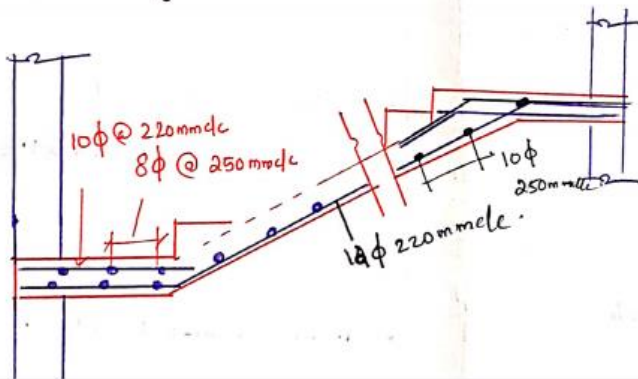 10ϕ @ 220mmc/c
8ϕ @ 250mmc/c
10ϕ
250mmc/c.
ϕ 220mmc/c.